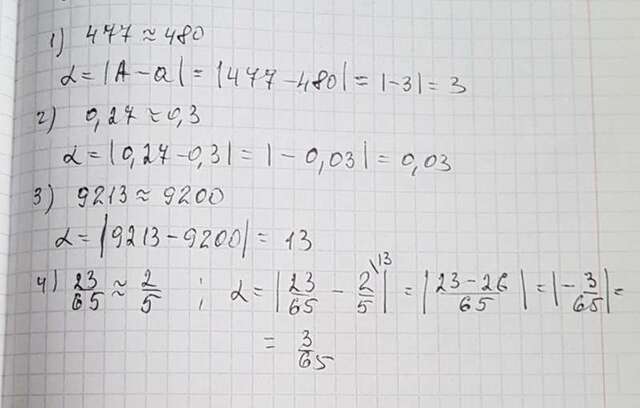 1) 477 ≈ 480
α = |A - a| = |477 - 480| = |-3| = 3
2) 0,27 ≈ 0,3
α = |0,27 - 0,3| = |- 0,03| = 0,03
3) 9213 ≈ 9200
α = |9213 - 9200| = 13
4) 23/65 ≈ 2/5 ; α = |23/65 - 2/5 \13| = |(23 - 26)/65| = |- 3/65| =
= 3/65